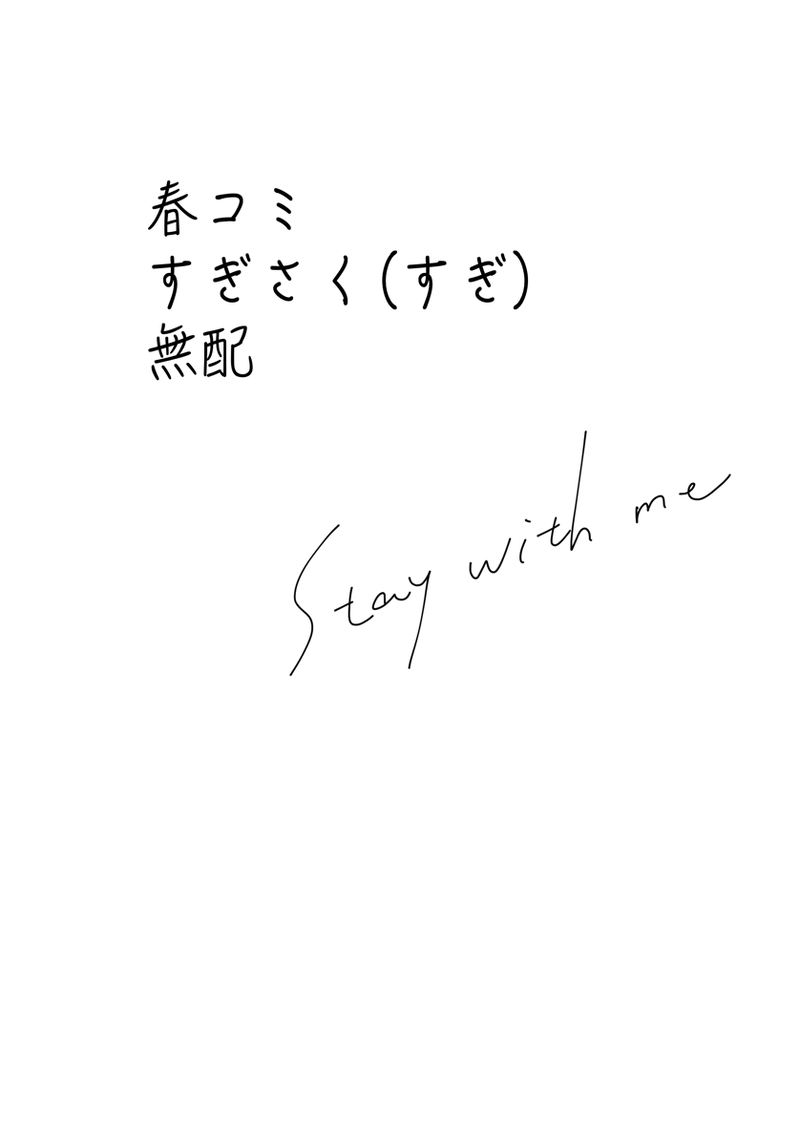 春コミ
すぎさく(すぎ)
無配
Stay with me